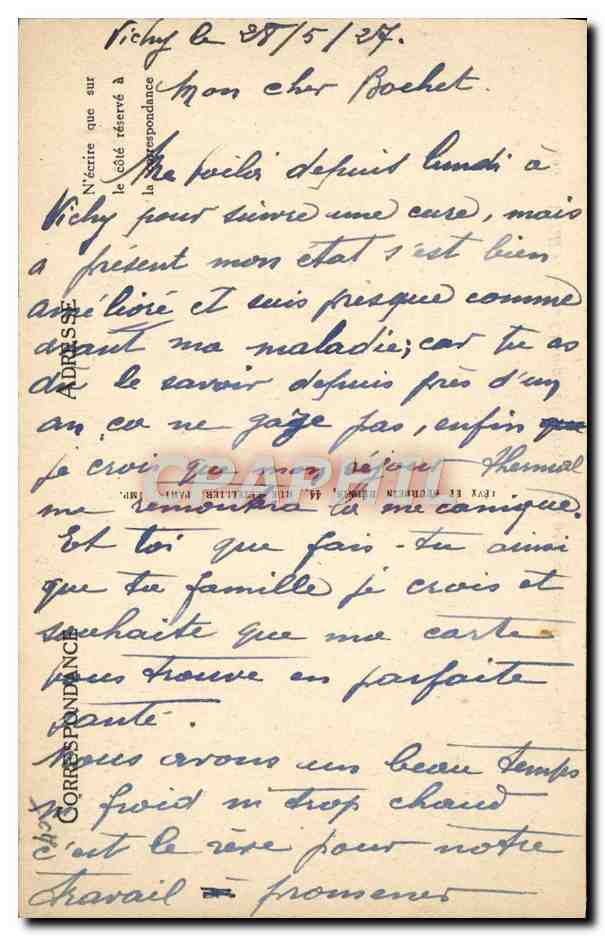 Vichy le 28/5/27.
Mon cher Bochet.
Me voilà depuis lundi à
Vichy pour suivre une cure, mais
a présent mon état s'est bien
amélioré et suis presque comme
avant ma maladie; car tu as
du le savoir depuis près d'un
an ça ne gaze pas, enfin que
je crois que mon séjour thermal
me remontra la mecanique.
Et toi que fais-tu ainsi
que ta famille je crois et
souhaite que ma carte
vous trouve en parfaite
santé.
Nous avons un beau temps
ni froid ni trop chaud
c'est le rêve pour notre
travail = promener
N'écrire que sur
le côté réservé à
la correspondance
ADRESSE
CORRESPONDANCE
LÉVY ET NEURDEIN RÉUNIS, 44, RUE LETELLIER, PARIS IMP.
CPAPHIL